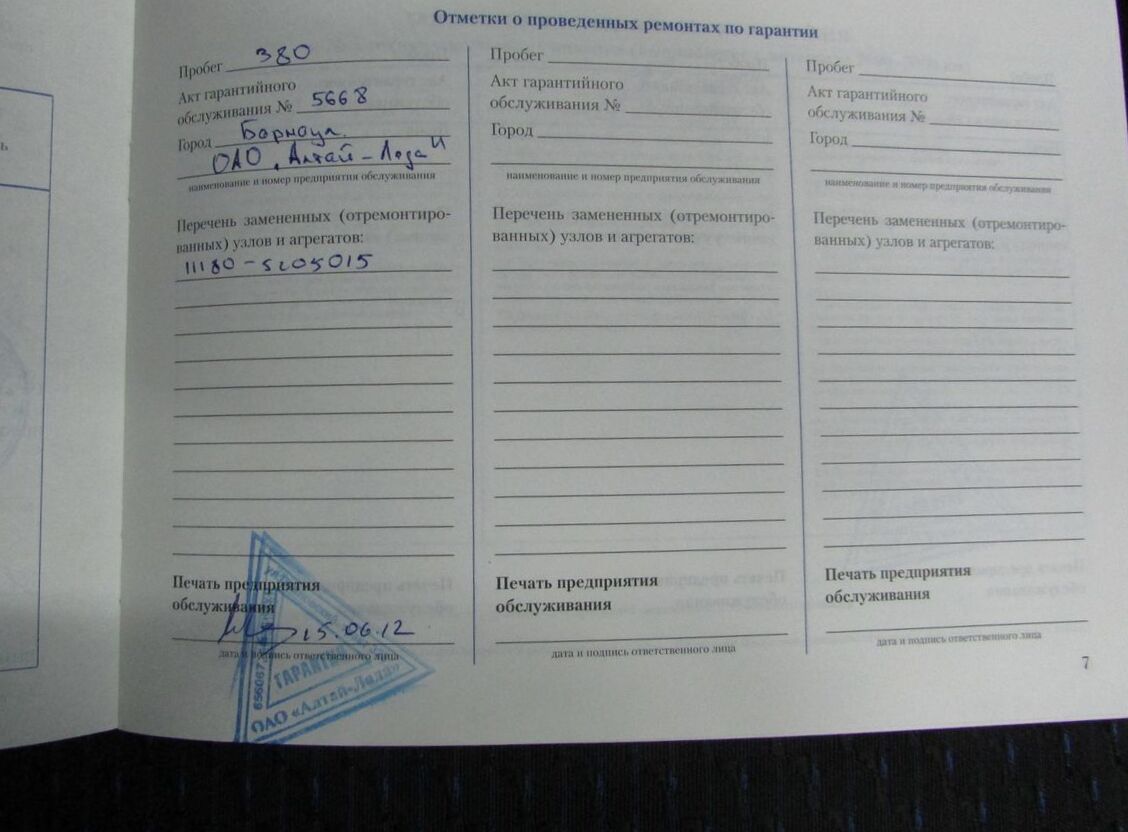 Отметки о проведенных ремонтах по гарантии
Пробег 380
Акт гарантийного
обслуживания № 5668
Город Барнаул.
ОАО "Алтай-Лада"
наименование и номер предприятия обслуживания
Перечень замененных (отремонтиро-
ванных) узлов и агрегатов:
11180-5205015
Печать предприятия
обслуживания
15.06.12
дата и подпись ответственного лица
656067
ГАРАНТИЯ
ОАО «Алтай-Лада»
Пробег
Акт гарантийного
обслуживания №
Город
наименование и номер предприятия обслуживания
Перечень замененных (отремонтиро-
ванных) узлов и агрегатов:
Печать предприятия
обслуживания
дата и подпись ответственного лица
Пробег
Акт гарантийного
обслуживания №
Город
наименование и номер предприятия обслуживания
Перечень замененных (отремонтиро-
ванных) узлов и агрегатов:
Печать предприятия
обслуживания
дата и подпись ответственного лица
7